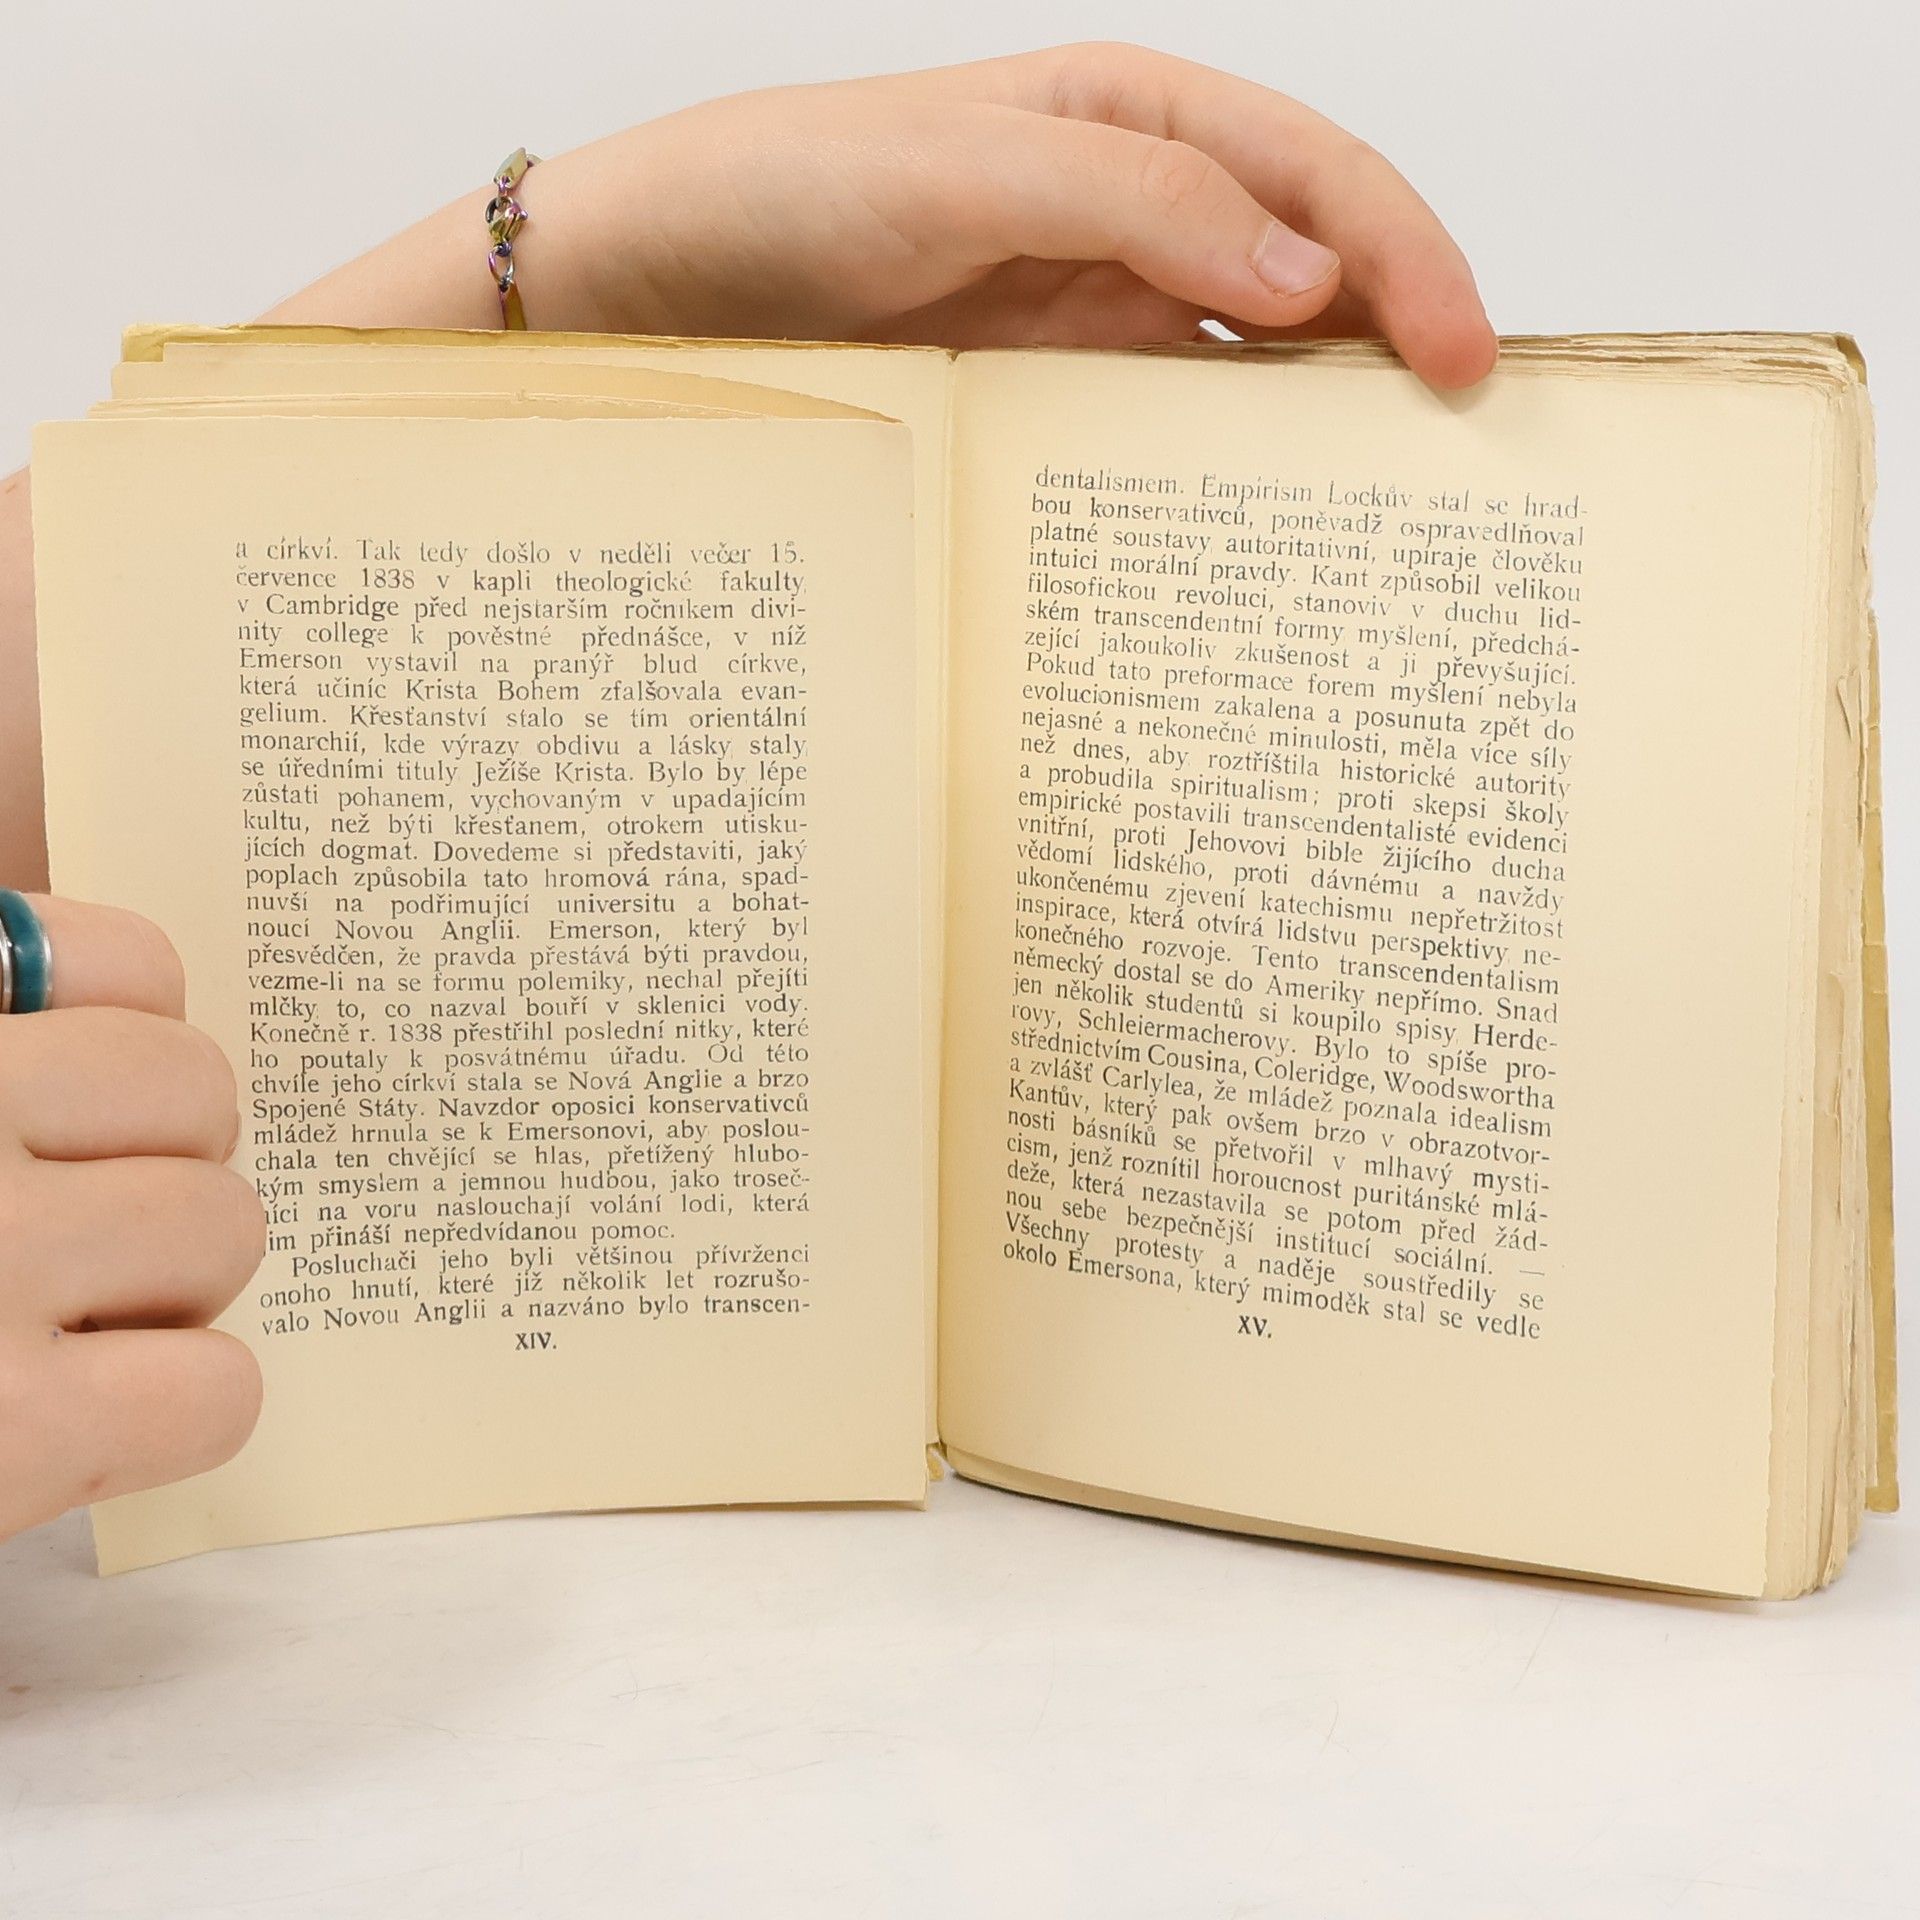 a církví. Tak tedy došlo v neděli večer 15.
července 1838 v kapli theologické fakulty
v Cambridge před nejstarším ročníkem divi-
nity college k pověstné přednášce, v níž
Emerson vystavil na pranýř blud církve,
která učiníc Krista Bohem zfalšovala evan-
gelium. Křesťanství stalo se tím orientální
monarchií, kde výrazy obdivu a lásky staly
se úředními tituly Ježíše Krista. Bylo by lépe
zůstati pohanem, vychovaným v upadajícím
kultu, než býti křesťanem, otrokem utisku-
jících dogmat. Dovedeme si představiti, jaký
poplach způsobila tato hromová rána, spad-
nuvší na podřimující universitu a bohat-
noucí Novou Anglii. Emerson, který byl
přesvědčen, že pravda přestává býti pravdou,
vezme-li na se formu polemiky, nechal přejíti
mlčky to, co nazval bouří v sklenici vody.
Konečně r. 1838 přestřihl poslední nitky, které
ho poutaly k posvátnému úřadu. Od této
chvíle jeho církví stala se Nová Anglie a brzo
Spojené Státy. Navzdor oposici konservativců
mládež hrnula se k Emersonovi, aby poslou-
chala ten chvějící se hlas, přetížený hlubo-
kým smyslem a jemnou hudbou, jako troseč-
níci na voru naslouchají volání lodi, která
jim přináší nepředvídanou pomoc.
Posluchači jeho byli většinou přívrženci
onoho hnutí, které již několik let rozrušo-
valo Novou Anglii a nazváno bylo transcen-
XIV.
dentalismem. Empirism Lockův stal se hrad-
bou konservativců, poněvadž ospravedlňoval
platné soustavy autoritativní, upíraje člověku
intuici morální pravdy. Kant způsobil velikou
filosofickou revoluci, stanoviv v duchu lid-
ském transcendentní formy myšlení, předchá-
zející jakoukoliv zkušenost a ji převyšující.
Pokud tato preformace forem myšlení nebyla
evolucionismem zakalena a posunuta zpět do
nejasné a nekonečné minulosti, měla více síly
než dnes, aby roztříštila historické autority
a probudila spiritualism; proti skepsi školy
empirické postavili transcendentalisté evidenci
vnitřní, proti Jehovovi bible žijícího ducha
vědomí lidského, proti dávnému a navždy
ukončenému zjevení katechismu nepřetržitost
inspirace, která otvírá lidstvu perspektivy ne-
konečného rozvoje. Tento transcendentalism
německý dostal se do Ameriky nepřímo. Snad
jen několik studentů si koupilo spisy Herde-
rovy, Schleiermacherovy. Bylo to spíše pro-
střednictvím Cousina, Coleridge, Woodswortha
a zvlášť Carlylea, že mládež poznala idealism
Kantův, který pak ovšem brzo v obrazotvor-
nosti básníků se přetvořil v mlhavý mysti-
cism, jenž roznítil horoucnost puritánské mlá-
deže, která nezastavila se potom před žád-
nou sebe bezpečnější institucí sociální. —
Všechny protesty a naděje soustředily se
okolo Emersona, který mimoděk stal se vedle
XV.